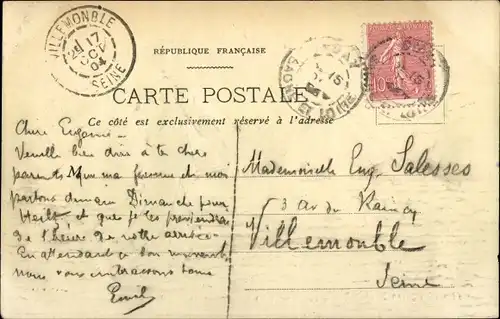 VILLEMONBLE
17
OCT
04
SEINE
RÉPUBLIQUE FRANÇAISE
15
15
10
CARTE POSTALE
Ce côté est exclusivement réservé à l'adresse
Chère Eugénie
Veuille bien dire à ta chère
que ma femme et moi
partons demain Dimanche pour
et que je les
de l'heure de notre arrivée
En attendant ce bon moment
nous vous embrassons tous
Emile
Mademoiselle Eug. Salesses
3 Av du Raincy
Villemomble
Seine